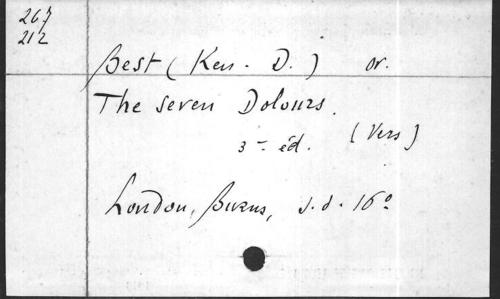 267
212
Best (Ken. D.) or.
The seven Dolours.
3e éd. (Vers)
London, Burns, s.d. 16º